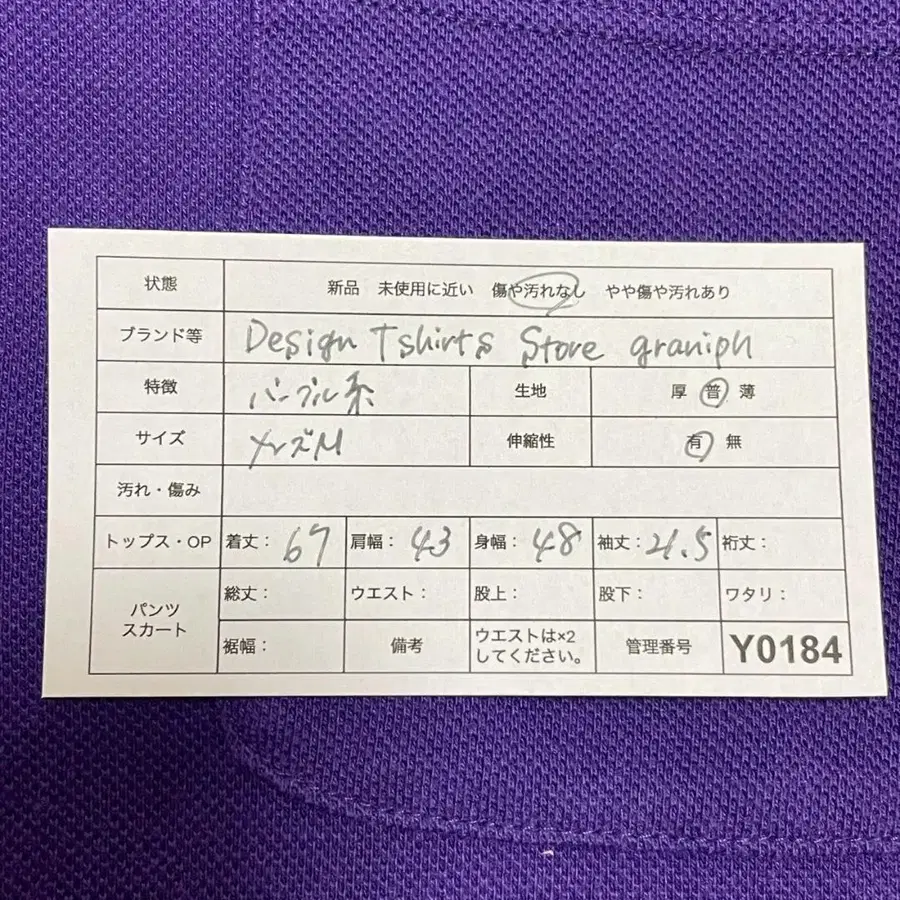 状態 新品 未使用に近い 傷や汚れなし やや傷や汚れあり
ブランド等 Design Tshirts Store graniph
特徴 パープル系 生地 厚 普 薄
サイズ メンズM 伸縮性 有 無
汚れ・傷み
トップス・OP 着丈： 67 肩幅： 43 身幅： 48 袖丈： 21.5 裄丈：
パンツ スカート 総丈： ウエスト： 股上： 股下： ワタリ：
裾幅： 備考 ウエストは×2 してください。 管理番号 Y0184